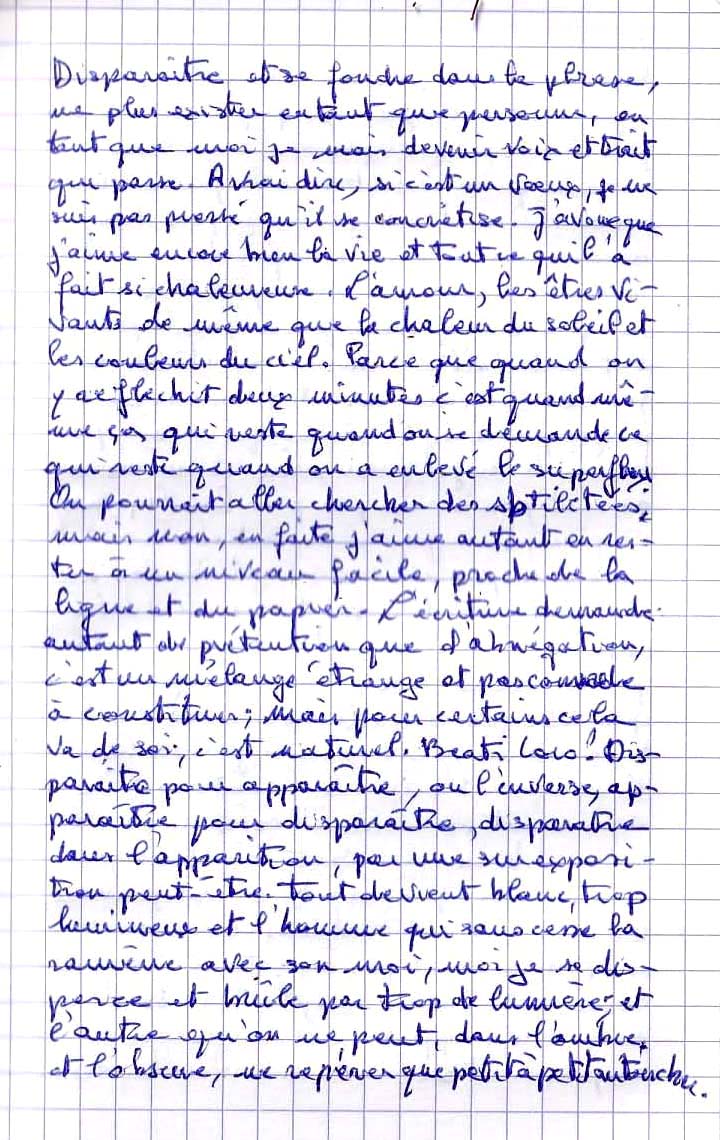 Disparaître et se fondre dans la phrase,
ne plus exister en tant que personne, en
tant que moi je mais devenir voix et trait
qui passe. A vrai dire, si c'est un voeux, je ne
suis pas pressé qu'il se concrétise. J'avoue que
j'aime encore bien la vie et tout ce qui l'a
fait si chaleureuse. L'amour, les êtres vi-
vants de même que la chaleur du soleil et
les couleurs du ciel. Parce que quand on
y réfléchit deux minutes c'est quand mê-
me ça qui reste quand on se demande ce
qui reste quand on a enlevé le superflu
On pourrait aller chercher des sbtilitées,
mais non, en faite j'aime autant en res-
ter à un niveau facile, proche de la
ligne et du papier. L'écriture demande
autant de prétention que d'abnégation,
c'est un mélange étrange et pas commode
à constituer; mais pour certains cela
va de soi, c'est naturel. Beati loro! Dis-
paraître pour apparaître, ou l'inverse, ap-
paraître pour disparaître, disparatre
dans l'apparition, par une surexposi-
tion peut-être. Tout devient blanc, trop
lumineux et l'homme qui sans cesse la
ramène avec son moi, moi je se dis-
perce et brûle par trop de lumière; et
l'autre qu'on ne peut, dans l'ombre,
et l'obscure, ne repérer que petit à petit au toucher.